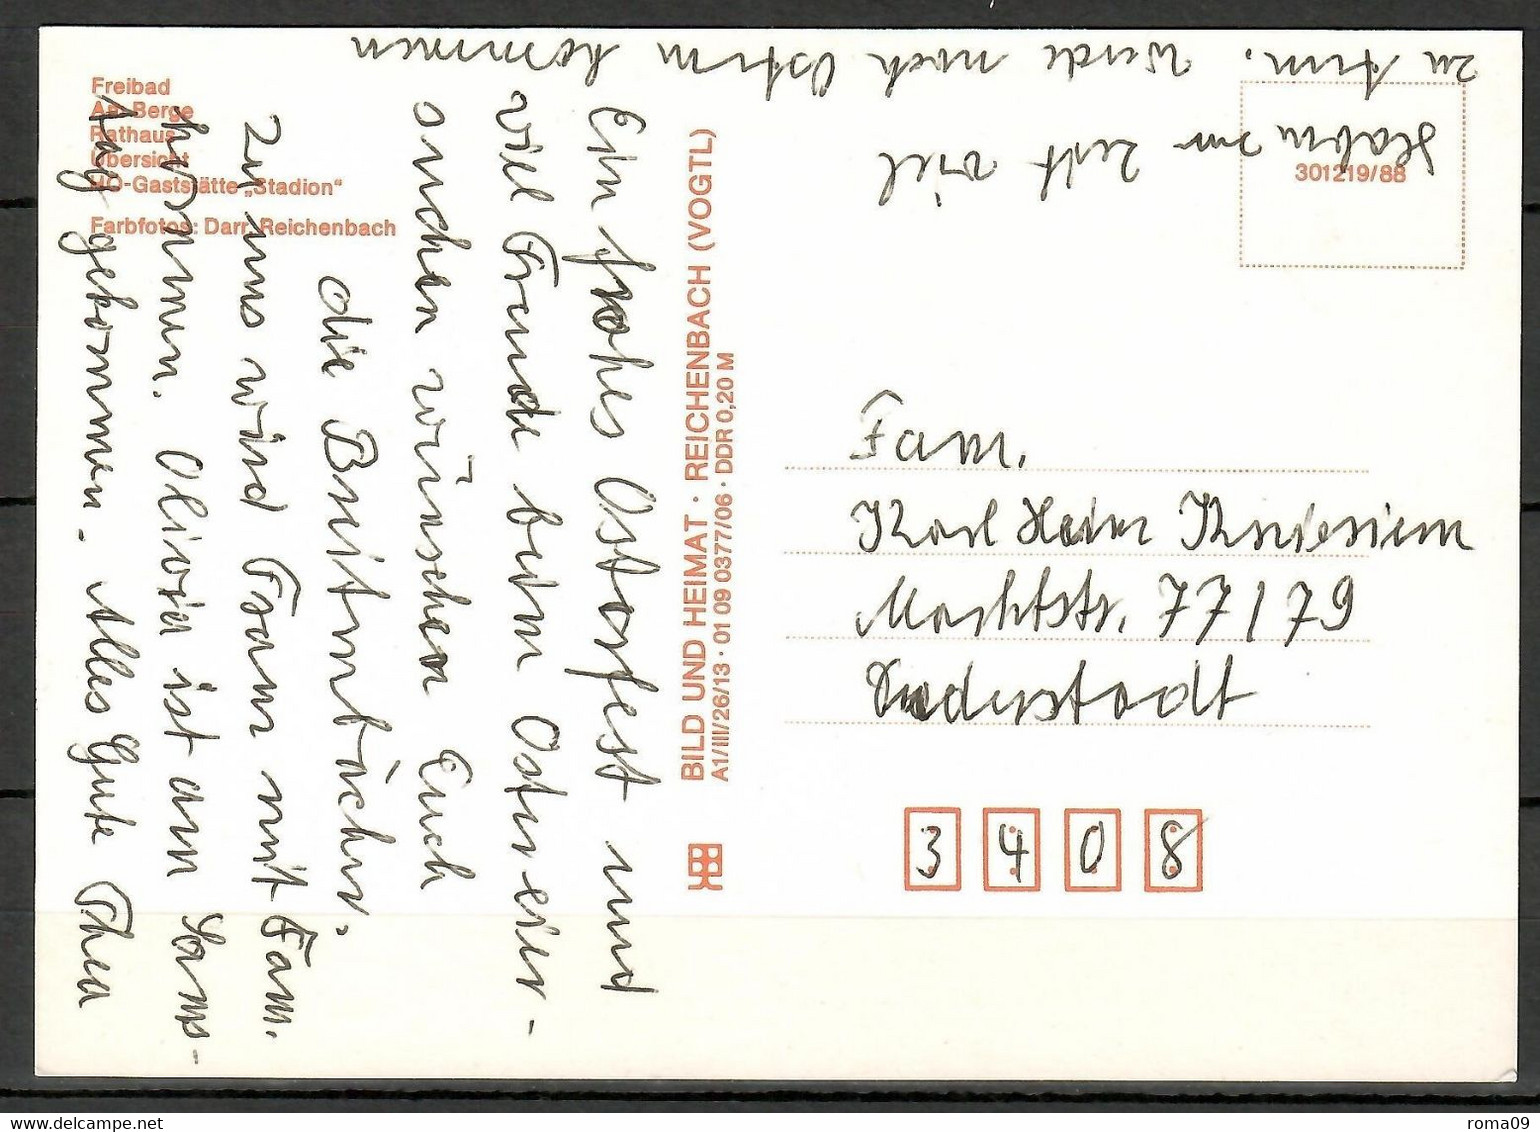 Freibad
Am Berge
Rathaus
Übersicht
HO-Gaststätte „Stadion“
Farbfotos: Darr, Reichenbach
Ein frohes Osterfest und
viel Freude beim Ostereier-
suchen wünschen Euch
die Breitenbacher.
Zu uns wird Frank mit Fam.
kommen. Olivia ist am Sams-
tag gekommen. Alles Gute Thea
Haben zur Zeit viel
zu tun. Werde nach Ostern kommen
BILD UND HEIMAT · REICHENBACH (VOGTL)
A1/III/26/13 · 01 09 0377/06 · DDR 0,20 M
301219/88
Fam.
Karl Heinz
Marktstr. 77/79
Duderstadt
3408
roma09